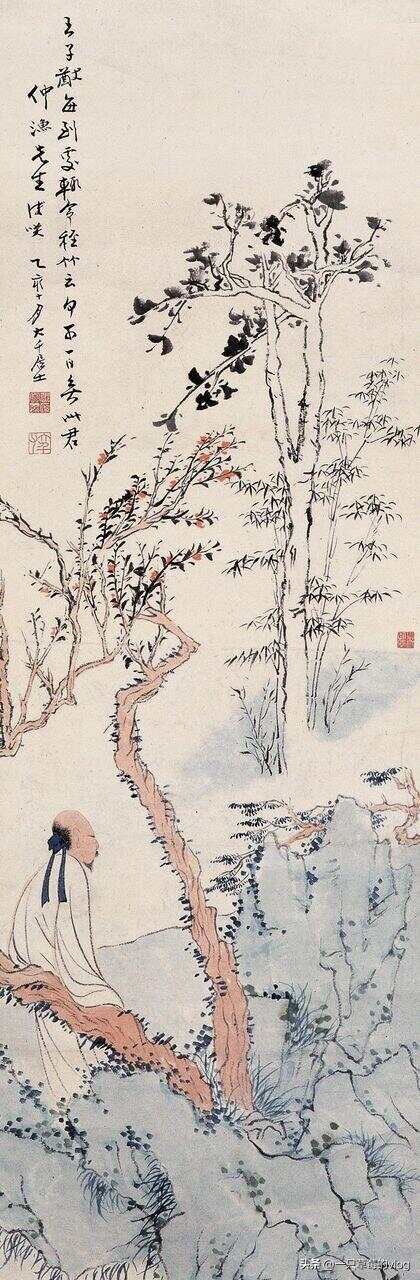 王子猷每到處輒令種竹云何可一日無此君
仲漁先生法咲 乙亥十月大千居士
头条 @一只草莓vlog